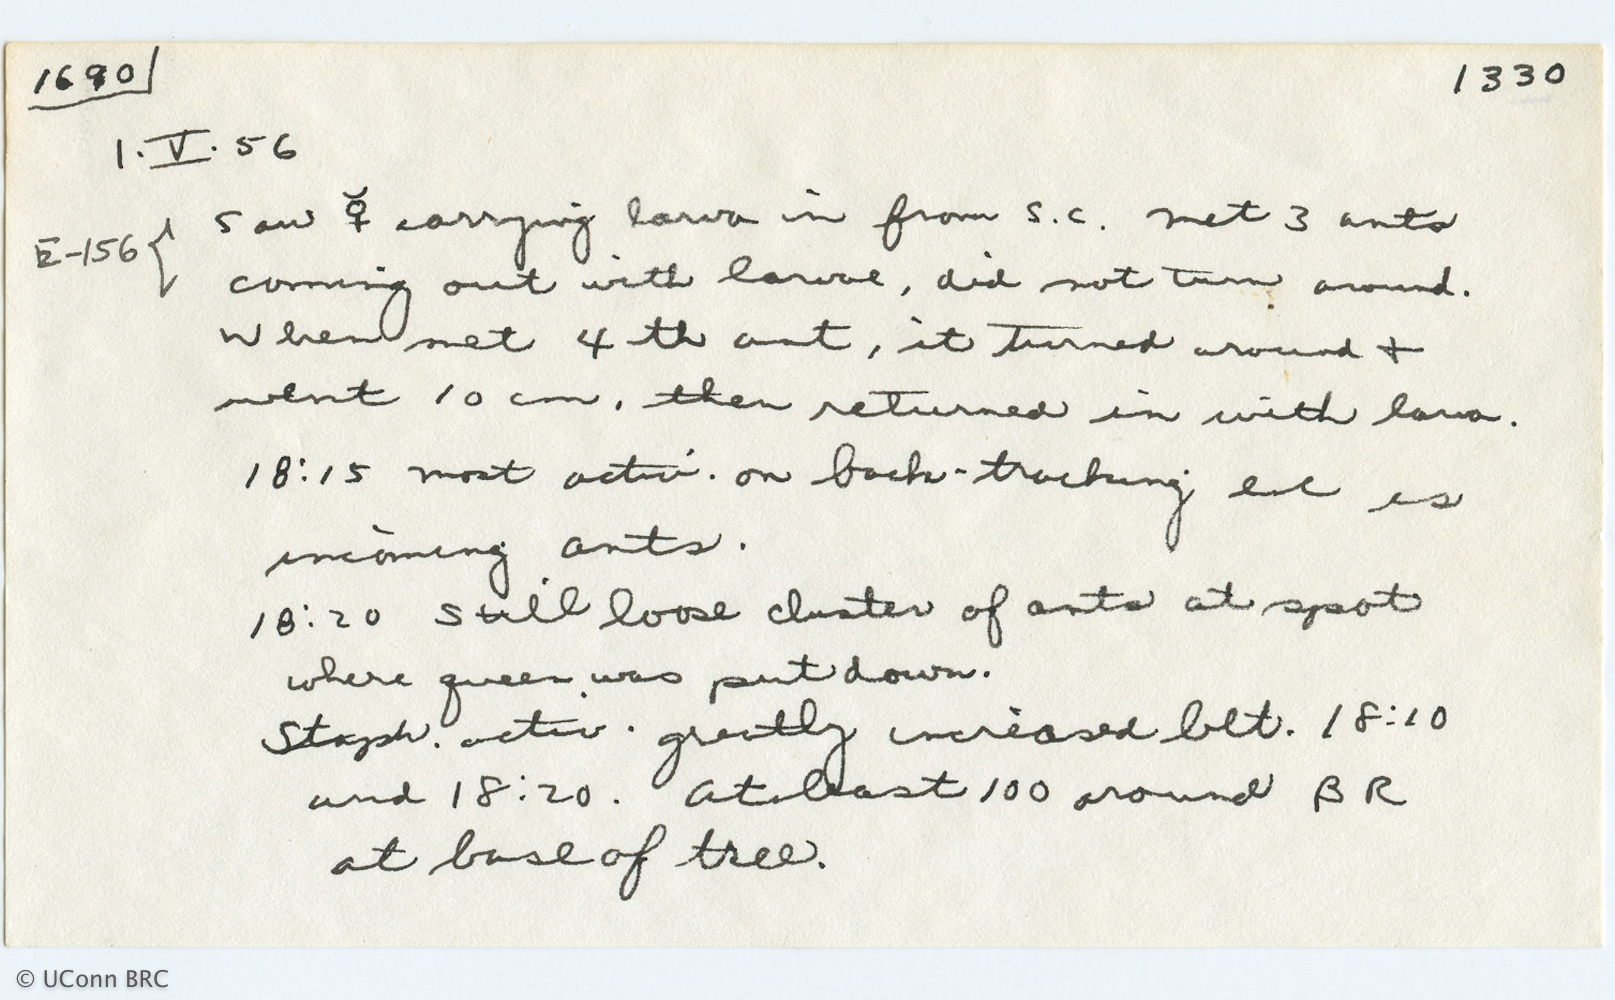 1690 1330
1.V.56
Saw ☿ carrying larva in from s.c. met 3 ants
E-156 { coming out with larvae, did not turn around.
When met 4th ant, it turned around +
went 10 cm, then returned in with larva.
18:15 most activ. on back-tracking is
incoming ants.
18:20 Still loose cluster of ants at spot
where queen was put down.
Staph. activ. greatly increased bet. 18:10
and 18:20. At least 100 around BR
at base of tree.
© UConn BRC